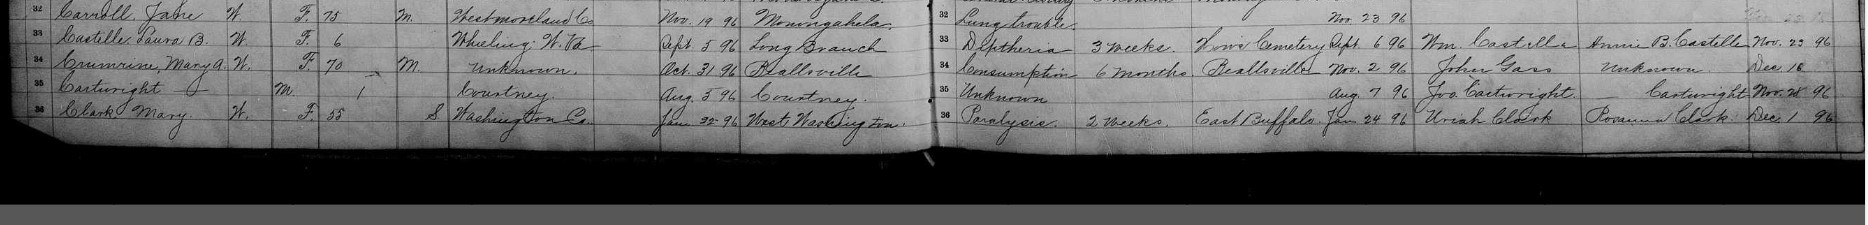 32 Carroll, Jane W. F. 75 M. Westmoreland Co Nov. 19 96 Monongahela 32 Lung trouble. Nov. 23 96
33 Castille, Laura B. W. F. 6 Wheeling, W. Va Sept 5 96 Long Branch 33 Diptheria 3 weeks. Cemetery Sept 6 96 Wm. Castille Annie B. Castelle Nov. 23 96
34 Crumrine, Mary A. W. F. 70 M. Unknown. Oct. 31 96 Beallsville 34 Consumption 6 months Beallsville Nov. 2 96 John Gass Unknown. Dec. 16
35 Cartwright — M 1 Courtney. Aug. 5 96 Courtney. 35 Unknown Aug. 7 96 Jno. Cartwright. Cartwright Nov. 28 96
36 Clark Mary. W. F. 55 S Washington Co. Jan 22 96 West Washington. 36 Paralysis. 2 weeks. East Buffalo. Jan 24 96 Uriah Clark Rosanna Clark Dec. 1 96